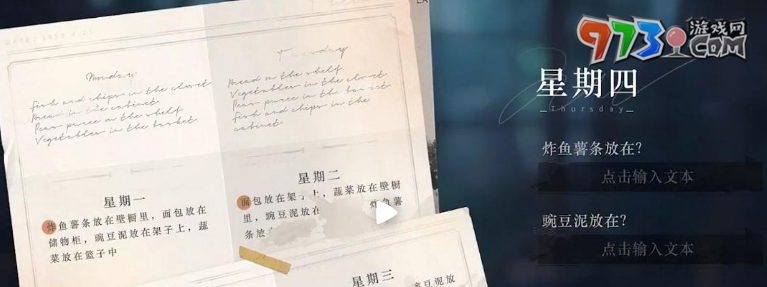 Monday
fish and chips in the closet
Bread in the cabinet
Peas puree in the shelf
Vegetables in the basket
Tuesday
Bread in the shelf
Vegetables in the closet
Peas puree in the basket
fish and chips in the
cabinet
星期一
炸鱼薯条放在壁橱里，面包放在
储物柜，豌豆泥放在架子上，蔬
菜放在篮子中
星期二
面包放在架子上，蔬菜放在壁橱
里，豌豆泥放在
炸鱼薯
条放
星期三
豌豆泥放
973游戏网
.COM
星期四
Thursday
炸鱼薯条放在？
点击输入文本
豌豆泥放在？
点击输入文本